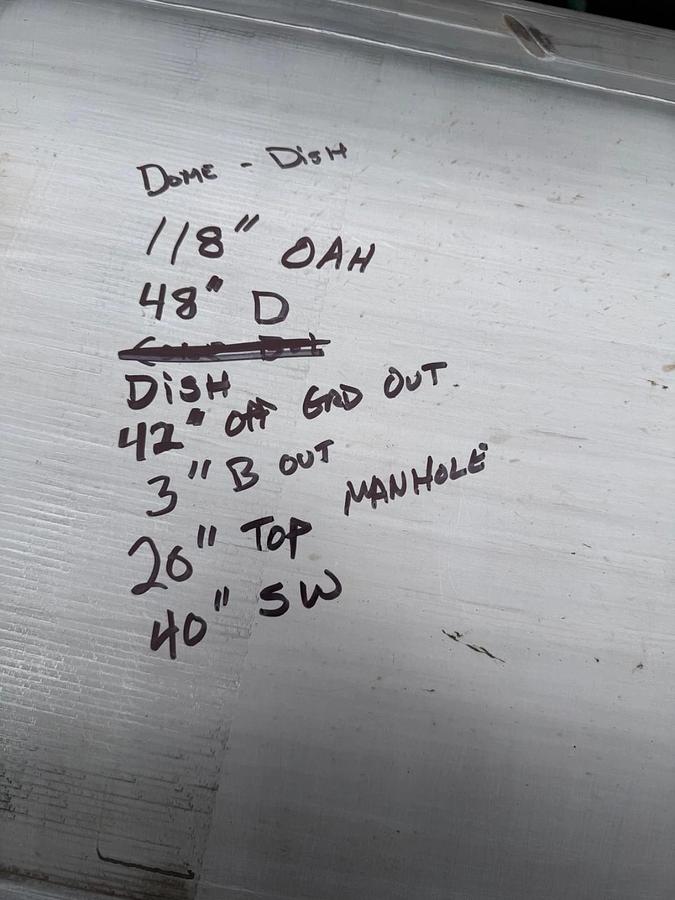 DOME - DISH
118" OAH
48" D
DISH
42" Off GRD OUT
3" B OUT
MANHOLE
20" TOP
40" SW